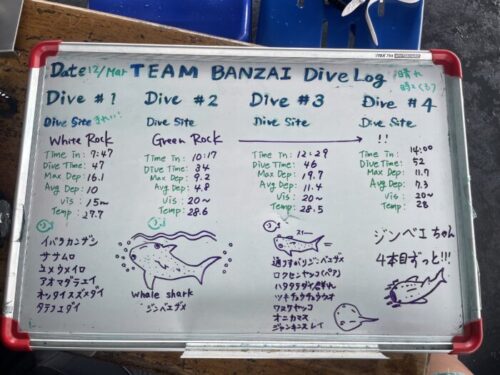 Date 12/Mar TEAM BANZAI Dive Log 晴れ
時々くもり
Dive #1
Dive Site きれい!
White Rock
Time In: 7:47
Dive Time: 47
Max Dep: 16.1
Avg Dep: 10
Vis: 15~
Temp: 27.7
イバラカンザシ
ササムロ
ユメウメイロ
アオマダラエイ
オッタイスズメダイ
タテフエダイ
Dive #2
Dive Site
Green Rock
Time In: 10:17
Dive Time: 34
Max Dep: 9.2
Avg Dep: 4.8
Vis: 20~
Temp: 28.6
whale shark
ジンベエザメ
Dive #3
Dive Site
Time In: 12:29
Dive Time: 46
Max Dep: 19.7
Avg Dep: 11.4
Vis: 20~
Temp: 28.5
スイー
通りすがりジンベエザメ
ロクセンヤッコ(ペア)
ハタタテダイ
ツキチョウチョウウオ
ワヌケヤッコ
オニカマス
ジャンキンスレイ
Dive #4
Dive Site
!!
Time In: 14:00
Dive Time: 52
Max Dep: 11.7
Avg Dep: 7.3
Vis: 20~
Temp: 28
ジンベエちゃん
4本目ずっと!!!